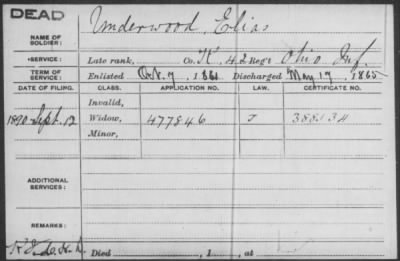 DEAD
NAME OF SOLDIER: Underwood, Elias
SERVICE: Late rank, Co. K, 42 Reg't Ohio Inf.
TERM OF SERVICE: Enlisted Oct. 7, 1861 Discharged May 17, 1865
DATE OF FILING. CLASS. APPLICATION NO. LAW. CERTIFICATE NO.
Invalid,
1890 Sept. 12 Widow, 477846 J 388134
Minor,
ADDITIONAL SERVICES:
REMARKS:
Died , 1 , at